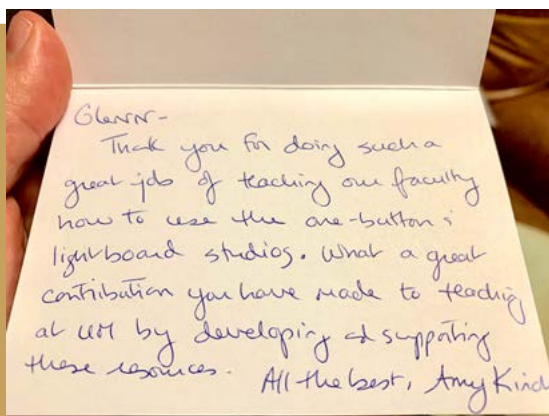 Glenn-
Thank you for doing such a
great job of teaching our faculty
how to use the one-button &
lightboard studios. What a great
contribution you have made to teaching
at UM by developing and supporting
these resources. All the best, Amy Kind